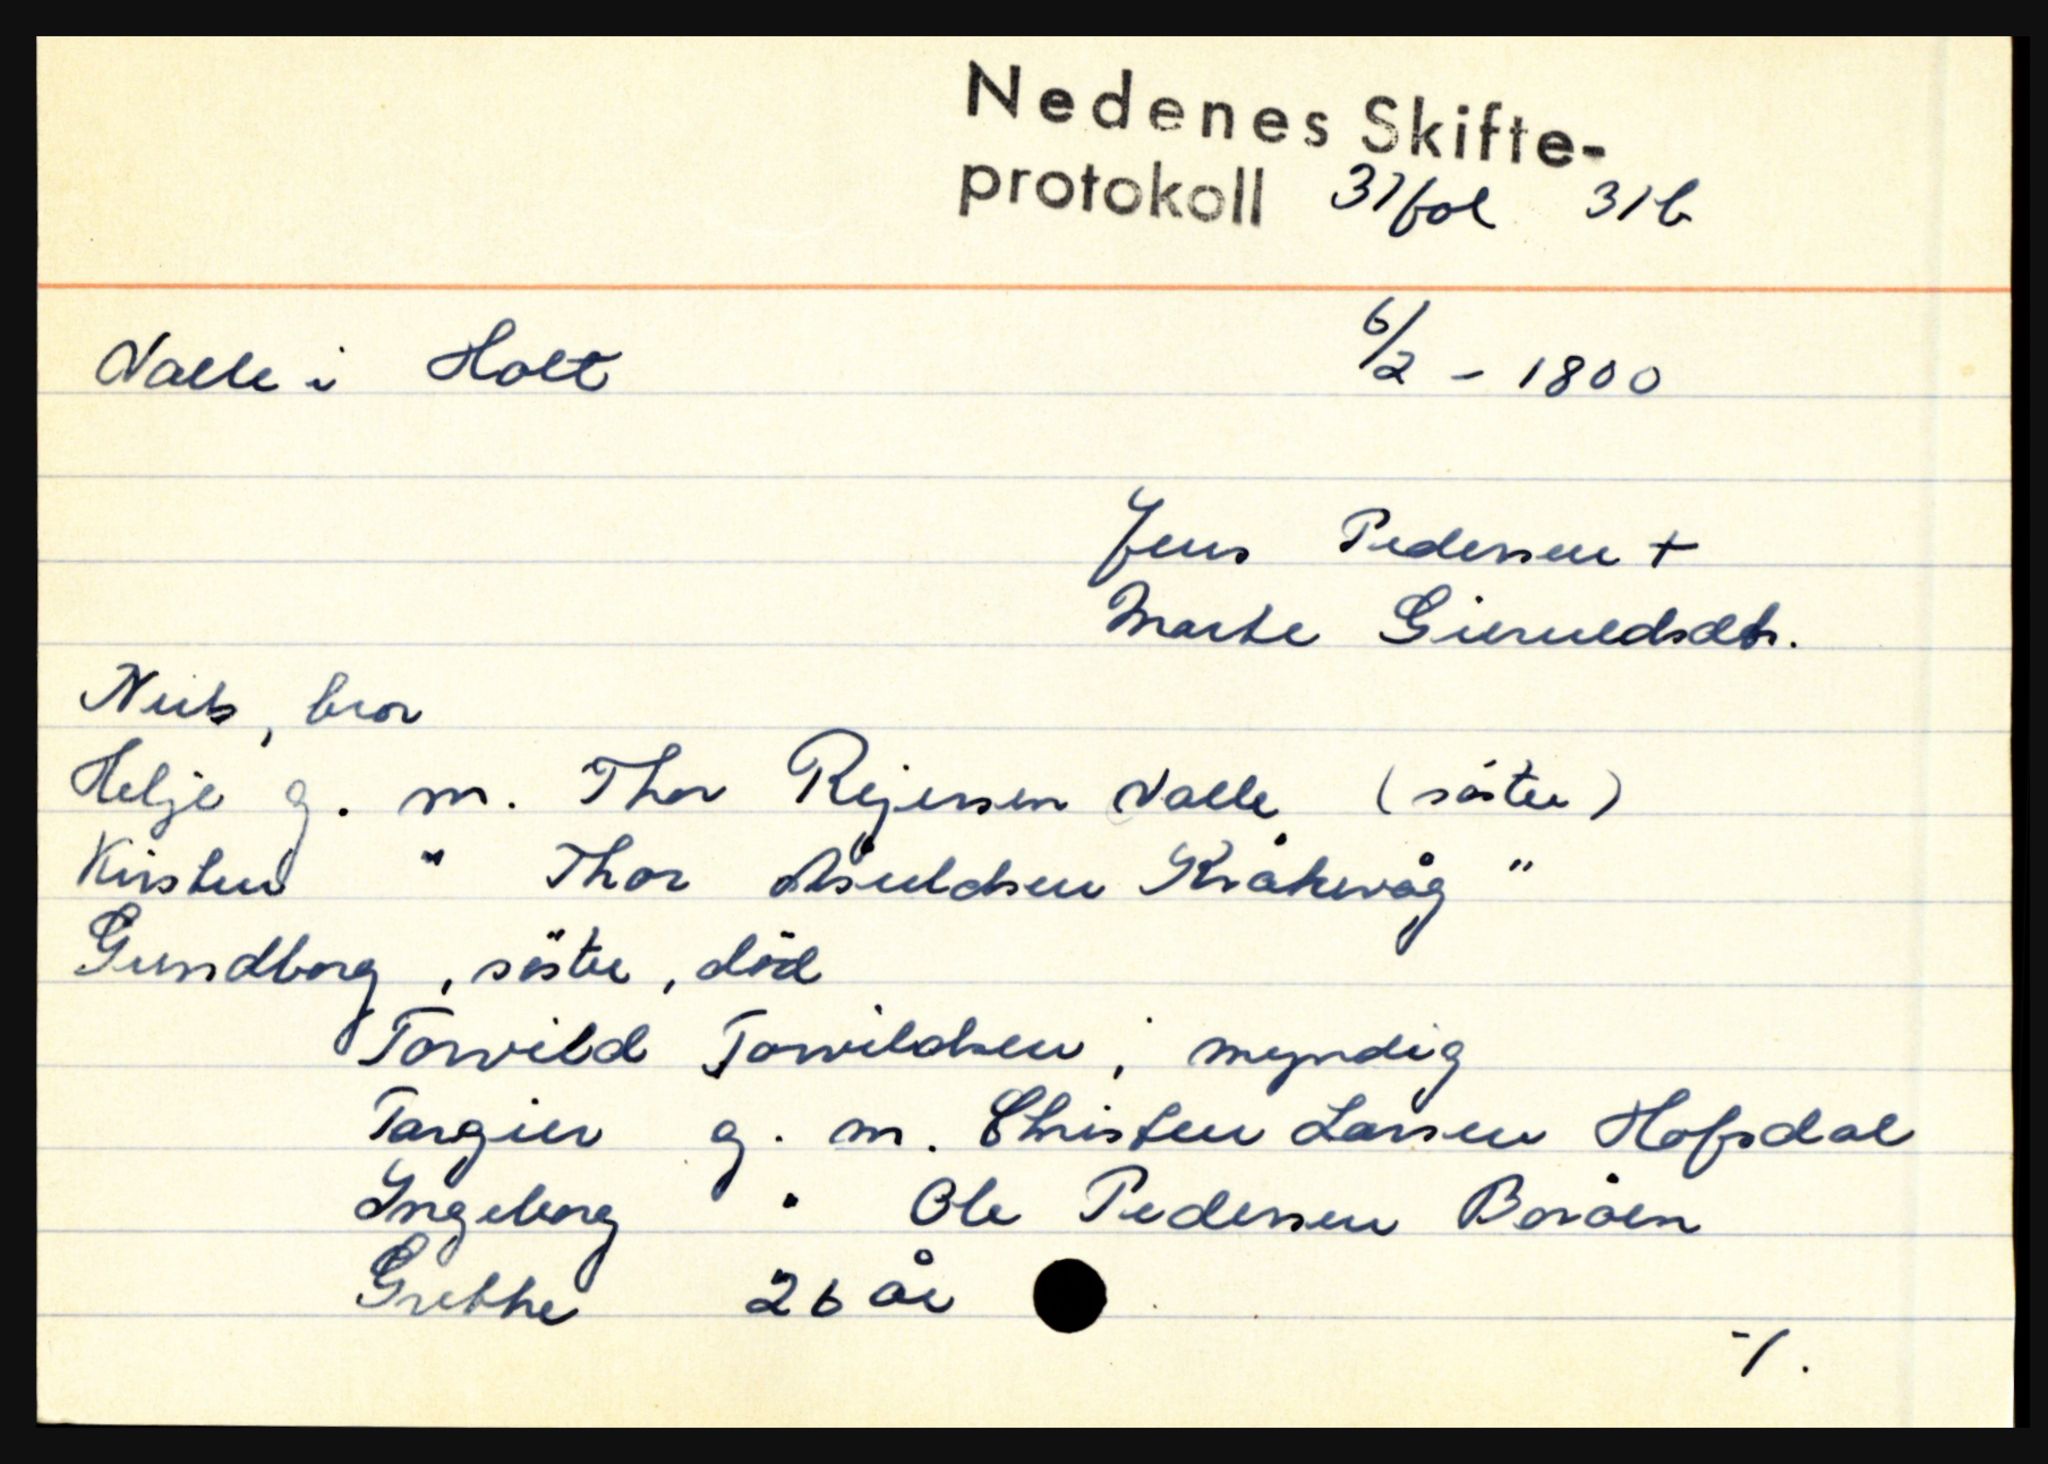 Nedenes Skifte-
protokoll 37 fol 31b
Valle i Holt 6/2 - 1800
Jens Pedersen +
Marte Gieruldsdtr.
Niels, bror
Helje g. m. Thor Rejersen Valle (söster)
Kirsten " Thor Asuldsen Kråkevåg "
Gundborg, söster, död
Torvild Torvildsen, myndig
Targier g. m. Christen Larsen Hofsdal
Ingeborg " Ole Pedersen Boråen
Grethe 26 år
-/.